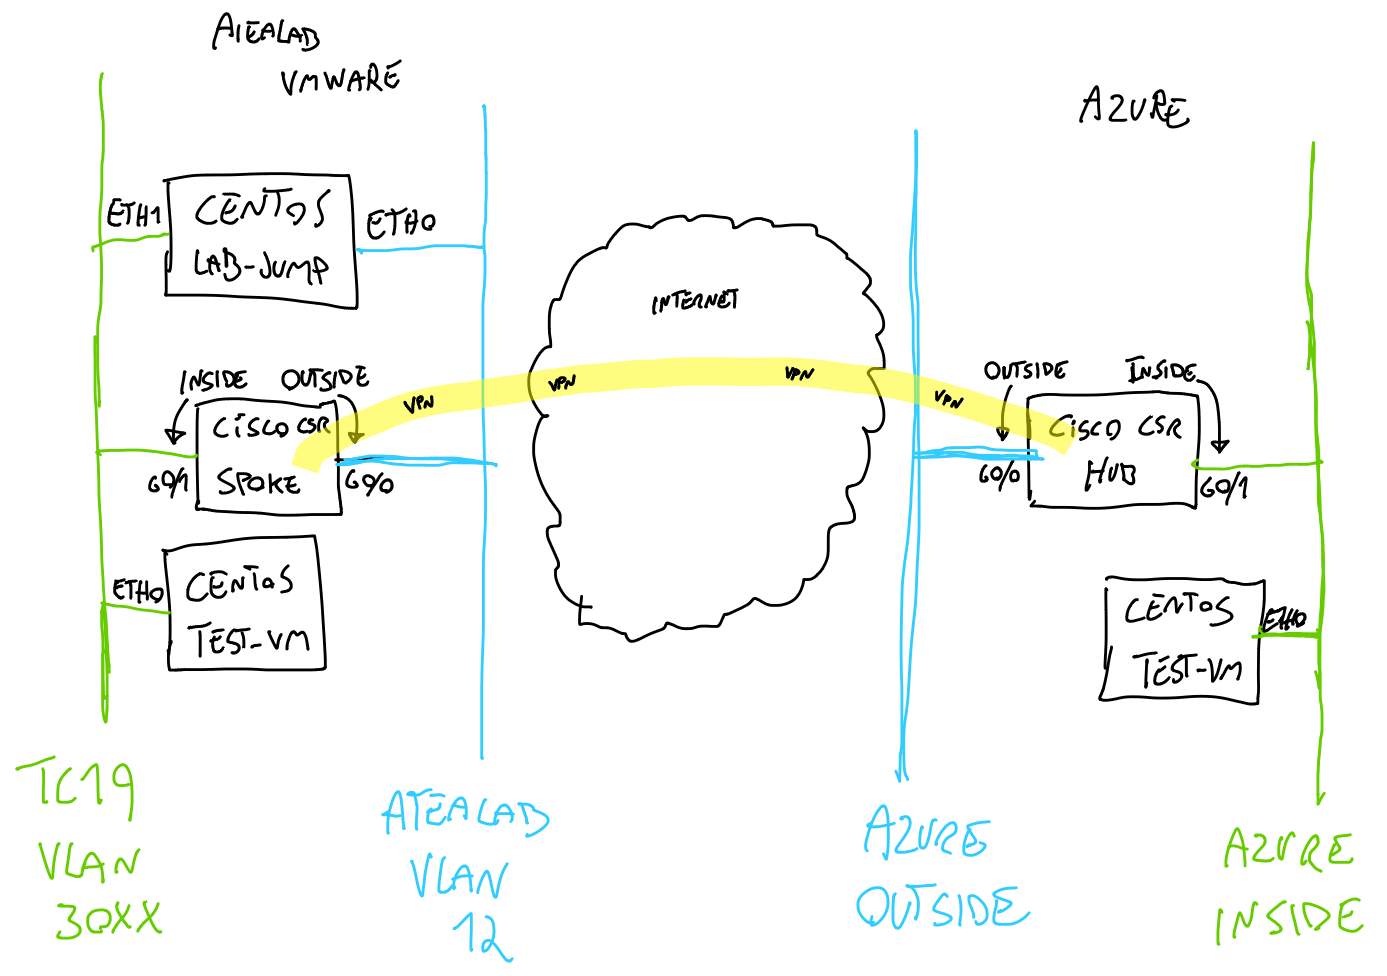 ATEALAB
VMWARE
AZURE
ETH1
CENTOS
LAB-JUMP
ETH0
INTERNET
INSIDE
OUTSIDE
CISCO CSR
SPOKE
G0/1
G0/0
VPN
VPN
VPN
VPN
OUTSIDE
INSIDE
CISCO CSR
HUB
G0/0
G0/1
ETH0
CENTOS
TEST-VM
CENTOS
TEST-VM
ETH0
TC19
VLAN
30XX
ATEALAB
VLAN
12
AZURE
OUTSIDE
AZURE
INSIDE